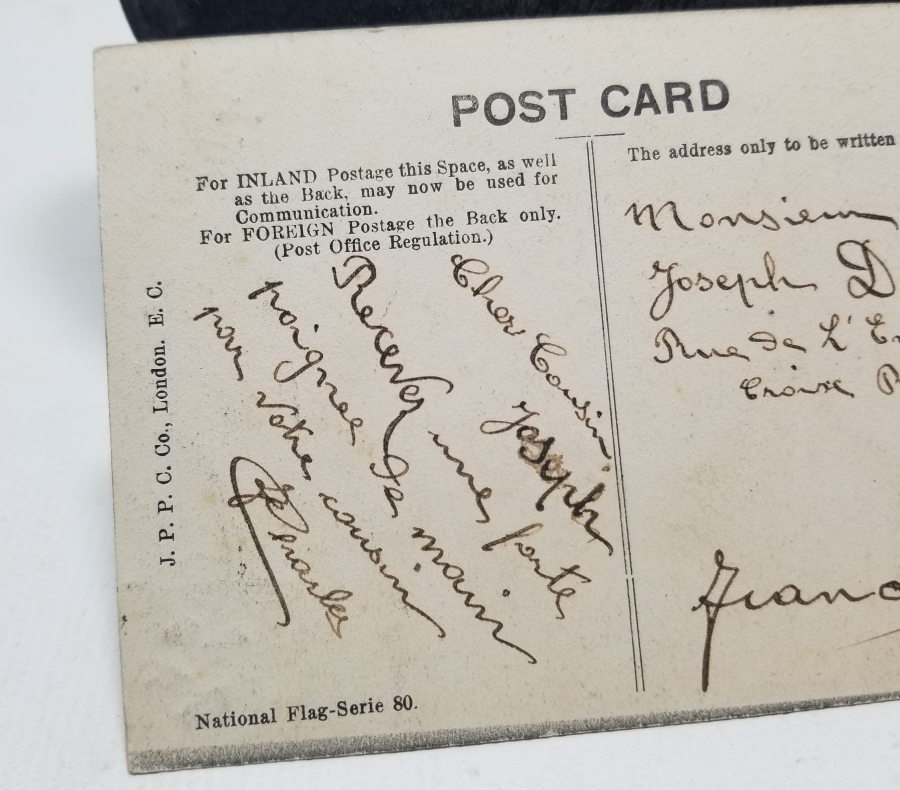 POST CARD
For INLAND Postage this Space, as well
as the Back, may now be used for
Communication.
For FOREIGN Postage the Back only.
(Post Office Regulation.)
The address only to be written
J. P. P. C. Co., London. E. C.
Cher Cousin
Joseph
Recever une forte
poignee de main
par votre cousin
Charles
Monsieur
Joseph D
Rue de L'E
Croix R
Franc
National Flag-Serie 80.